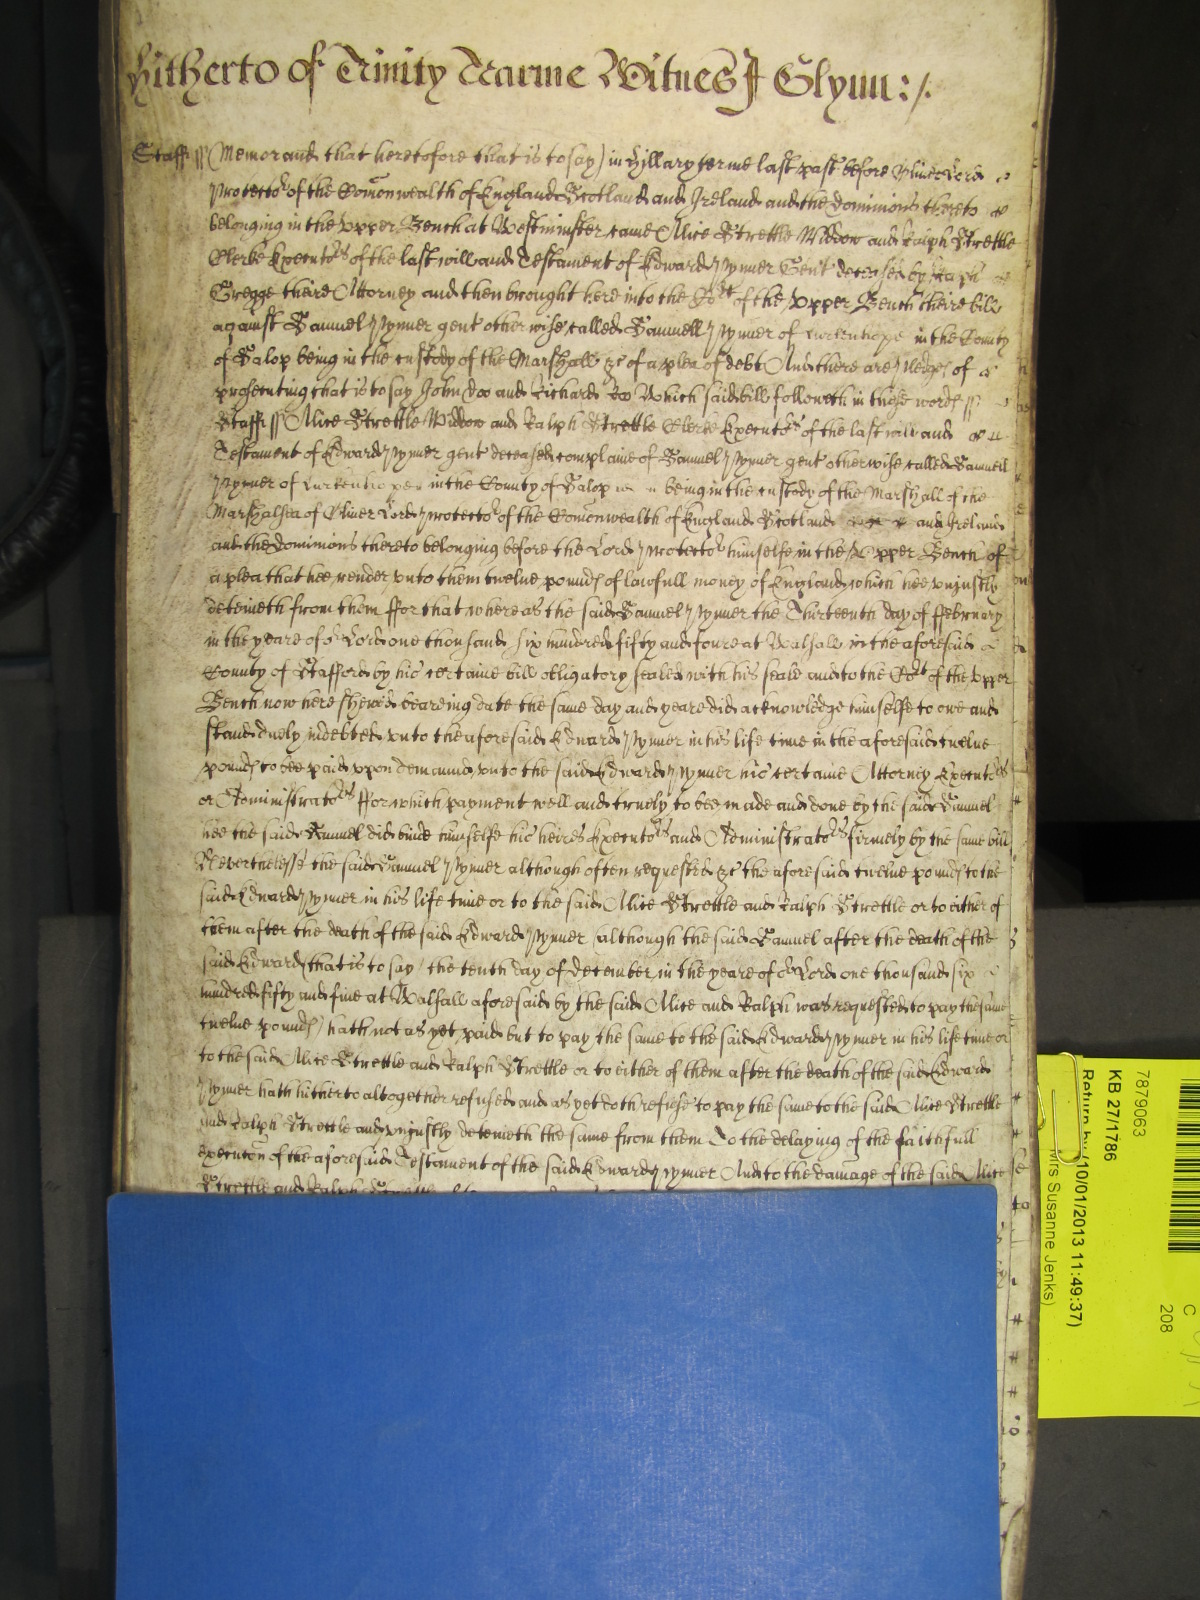 hitherto of Trinity Tearme Witnes J Glynn :/.
Staff ss Memorand that heretofore that is to say) in Hillary terme last past before Oliver Lord
Protector of the Comonwealth of England Scotland and Ireland and the dominions thereto
belonging in the Upper Bench at Westminster came Alice Strettle Widdow and Ralph Strettle
Clerke Executors of the last will and Testament of Edward Pynner Gent deceased by Ralph
Gregge theire Attorney and then brought here into the Cort of the Upper Bench theire bill
against Samuel Pynner gent otherwise called Samuell Pynner of in the County
of Salop being in the custody of the Marshall &c of a plea of debt And there are pledges of
prosecuting that is to say John Doo and Richard Roo Which said bill followeth in these words ss
Staff ss Alice Strettle Widdow and Ralph Strettle Clerke Executors of the last will and
Testament of Edward Pynner gent deceased complaine of Samuel Pynner gent otherwise called Samuell
Pynner of in the County of Salop being in the custody of the Marshall of the
Marshalsea of Oliver Lord Protector of the Comonwealth of England Scotland and Ireland
and the Dominions thereto belonging before the Lord Protector himselfe in the Upper Bench of
a plea that hee render unto them twelve pounds of lawfull money of England which hee unjustly
deteineth from them ffor that whereas the said Samuel Pynner the Thirteenth day of ffebruary
in the yeare of or Lord one thousand six hundred fifty and foure at Walsall in the aforesaid
County of Stafford by his certaine bill obligatory sealed with his seale and to the Cort of the Upper
Bench now here shewed beareing date the same day and yeare did acknowledge himselfe to owe and
stand duely indebted unto the aforesaid Edward Pynner in his life time in the aforesaid twelve
pounds to bee paid upon demaund unto the said Edward Pynner his certaine Attorney Executors
or Administrators ffor which payment well and truely to bee made and done by the said Samuel
hee the said Samuel did binde himselfe his heires Executors and Administrators firmely by the same bill
Neverthelesse the said Samuel Pynner although often requested &c the aforesaid twelve pounds to the
said Edward Pynner in his life time or to the said Alice Strettle and Ralph Strettle or to either of
them after the death of the said Edward Pynner (although the said Samuel after the death of the
said Edward that is to say the tenth day of December in the yeare of or Lord one thousand six
hundred fifty and five at Walsall aforesaid by the said Alice and Ralph was requested to pay the same
twelve pounds) hath not as yet paid but to pay the same to the said Edward Pynner in his life time or
to the said Alice Strettle and Ralph Strettle or to either of them after the death of the said Edward
Pynner hath hitherto altogether refused and as yet doth refuse to pay the same to the said Alice Strettle
and Ralph Strettle and unjustly deteineth the same from them To the delaying of the faithfull
execucon of the aforesaid Testament of the said Edward Pynner And to the damage of the said Alice
Strettle and Ralph Strettle
7879063
KB 27/1786
Return by (10/01/2013 11:49:37)
Mrs Susanne Jenks)
C
208